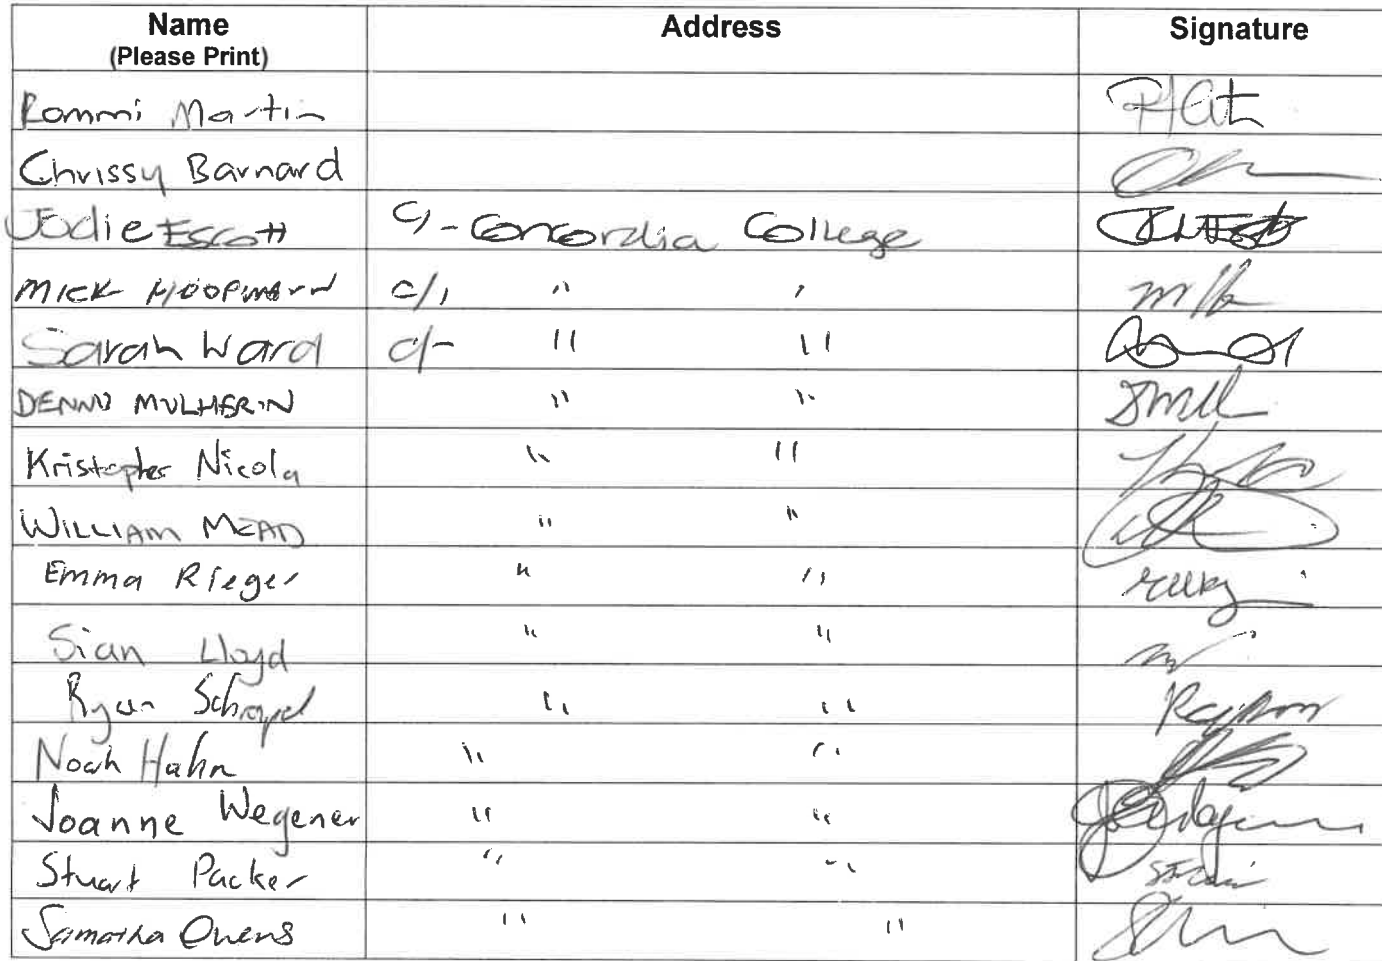 Name Address Signature
(Please Print)
Rommi Martin
Chrissy Barnard
Jodie Escott C/- Concordia College
MICK HOOPMANN C/, " "
Sarah Ward C/- " "
DENNIS MULHERIN " "
Kristopher Nicola " "
WILLIAM MEAD " "
Emma Rieger " "
Sian Lloyd " "
Ryan Schrapel " "
Noah Hahn " "
Joanne Wegener " "
Stuart Packer " "
Samantha Owens " "